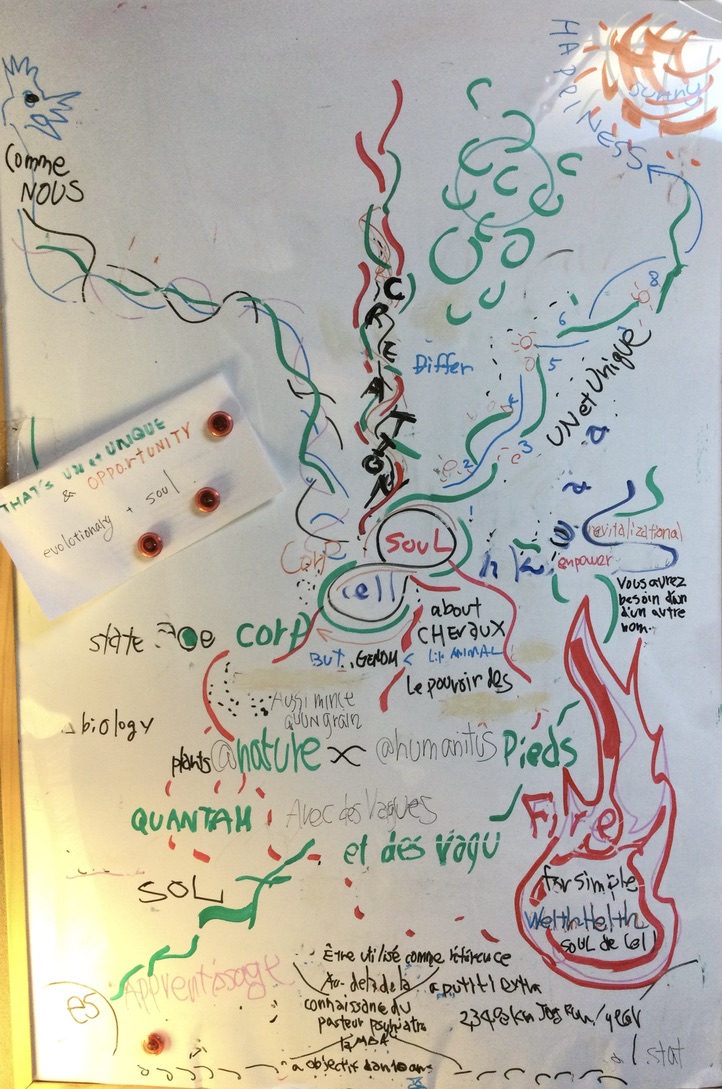 HAPPINESS
sunny
Comme
NOUS
CREATION
Differ
8
6
5
4
3
2
1
UN et Unique
THAT'S UN et UNIQUE
& OPPORTUNITY
evolotionary + soul
SOUL
Corp
cell
revitalizational
empower
Vous avrez
besoin d'un
d'un autre
nom.
state
corp
about
CHEVAUX
BUT, GENOM < Lik ANIMAL
Le pouvoir des
Aussi mince
qu'un grain
biology
plants @nature x @humanitus Pieds
QUANTAM
Avec des Vagues
et des vagu
Fire
SOL
for simple
Welth Helth
SOUL de Cell
Apprentissage
es
Être utilisé comme référence
au-delà de la
a putiti extra
connaissance du
pasteur psychiatre
2340.8 km Jog Run / year
a objectif dan 10 ans
1 stat